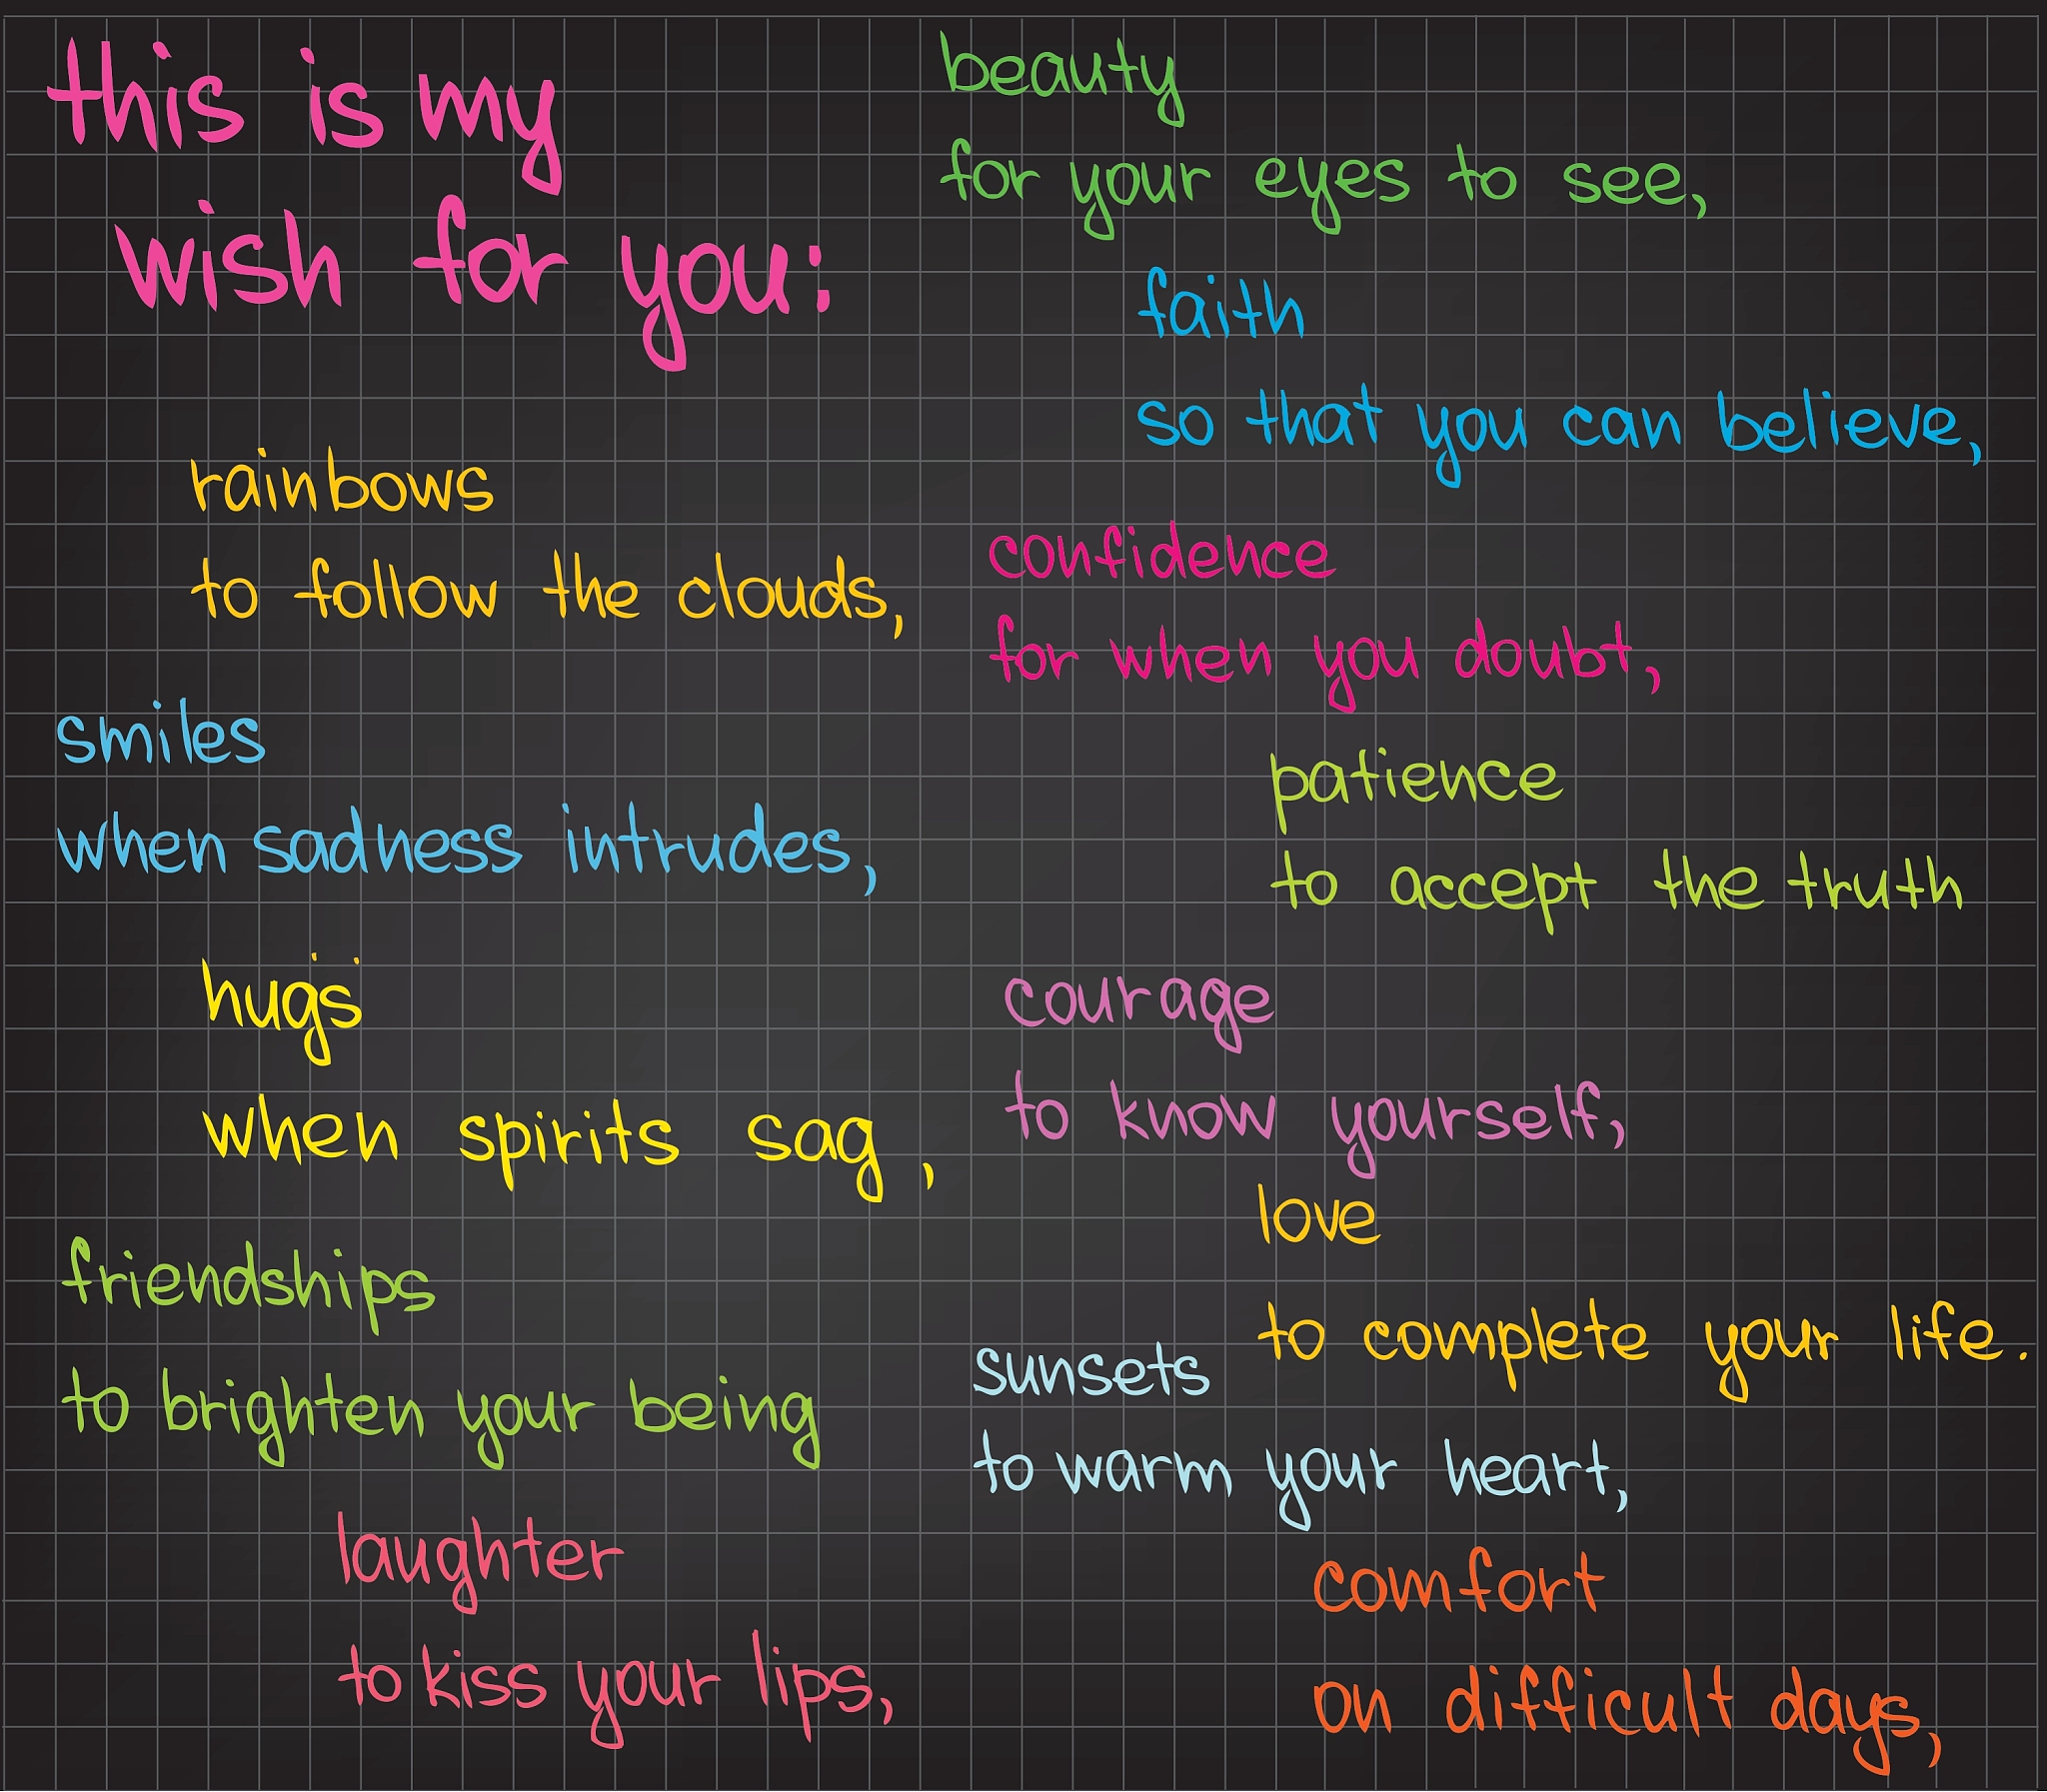 this is my
wish for you:
rainbows
to follow the clouds,
smiles
when sadness intrudes,
hugs
when spirits sag,
friendships
to brighten your being
laughter
to kiss your lips,
beauty
for your eyes to see,
faith
so that you can believe,
confidence
for when you doubt,
patience
to accept the truth
courage
to know yourself,
love
to complete your life.
sunsets
to warm your heart,
comfort
on difficult days,